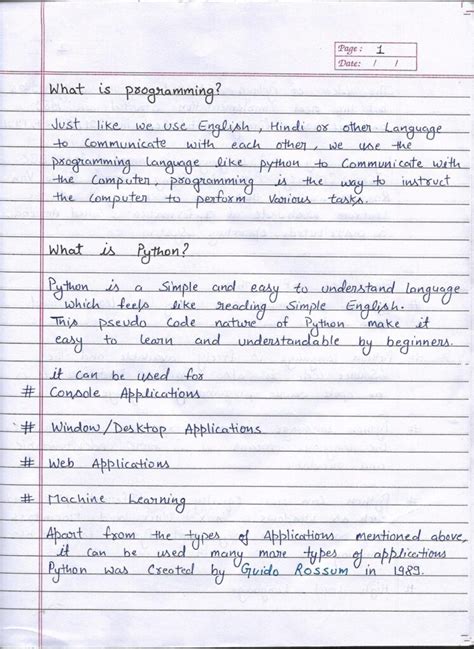 Page: 1
Date: / /
What is programming?
Just like we use English, Hindi or other Language
to Communicate with each other, we use the
programming language like python to Communicate with
the Computer, programming is the way to instruct
the computer to perform various tasks.
What is Python?
Python is a Simple and easy to understand language
which feels like reading Simple English.
This pseudo code nature of Python make it
easy to learn and understandable by beginners.
it can be used for
# Console Applications
# Window/Desktop Applications
# Web Applications
# Machine Learning
Apart from the types of Applications mentioned above,
it can be used many more types of applications
Python was Created by Guido Rossum in 1989.